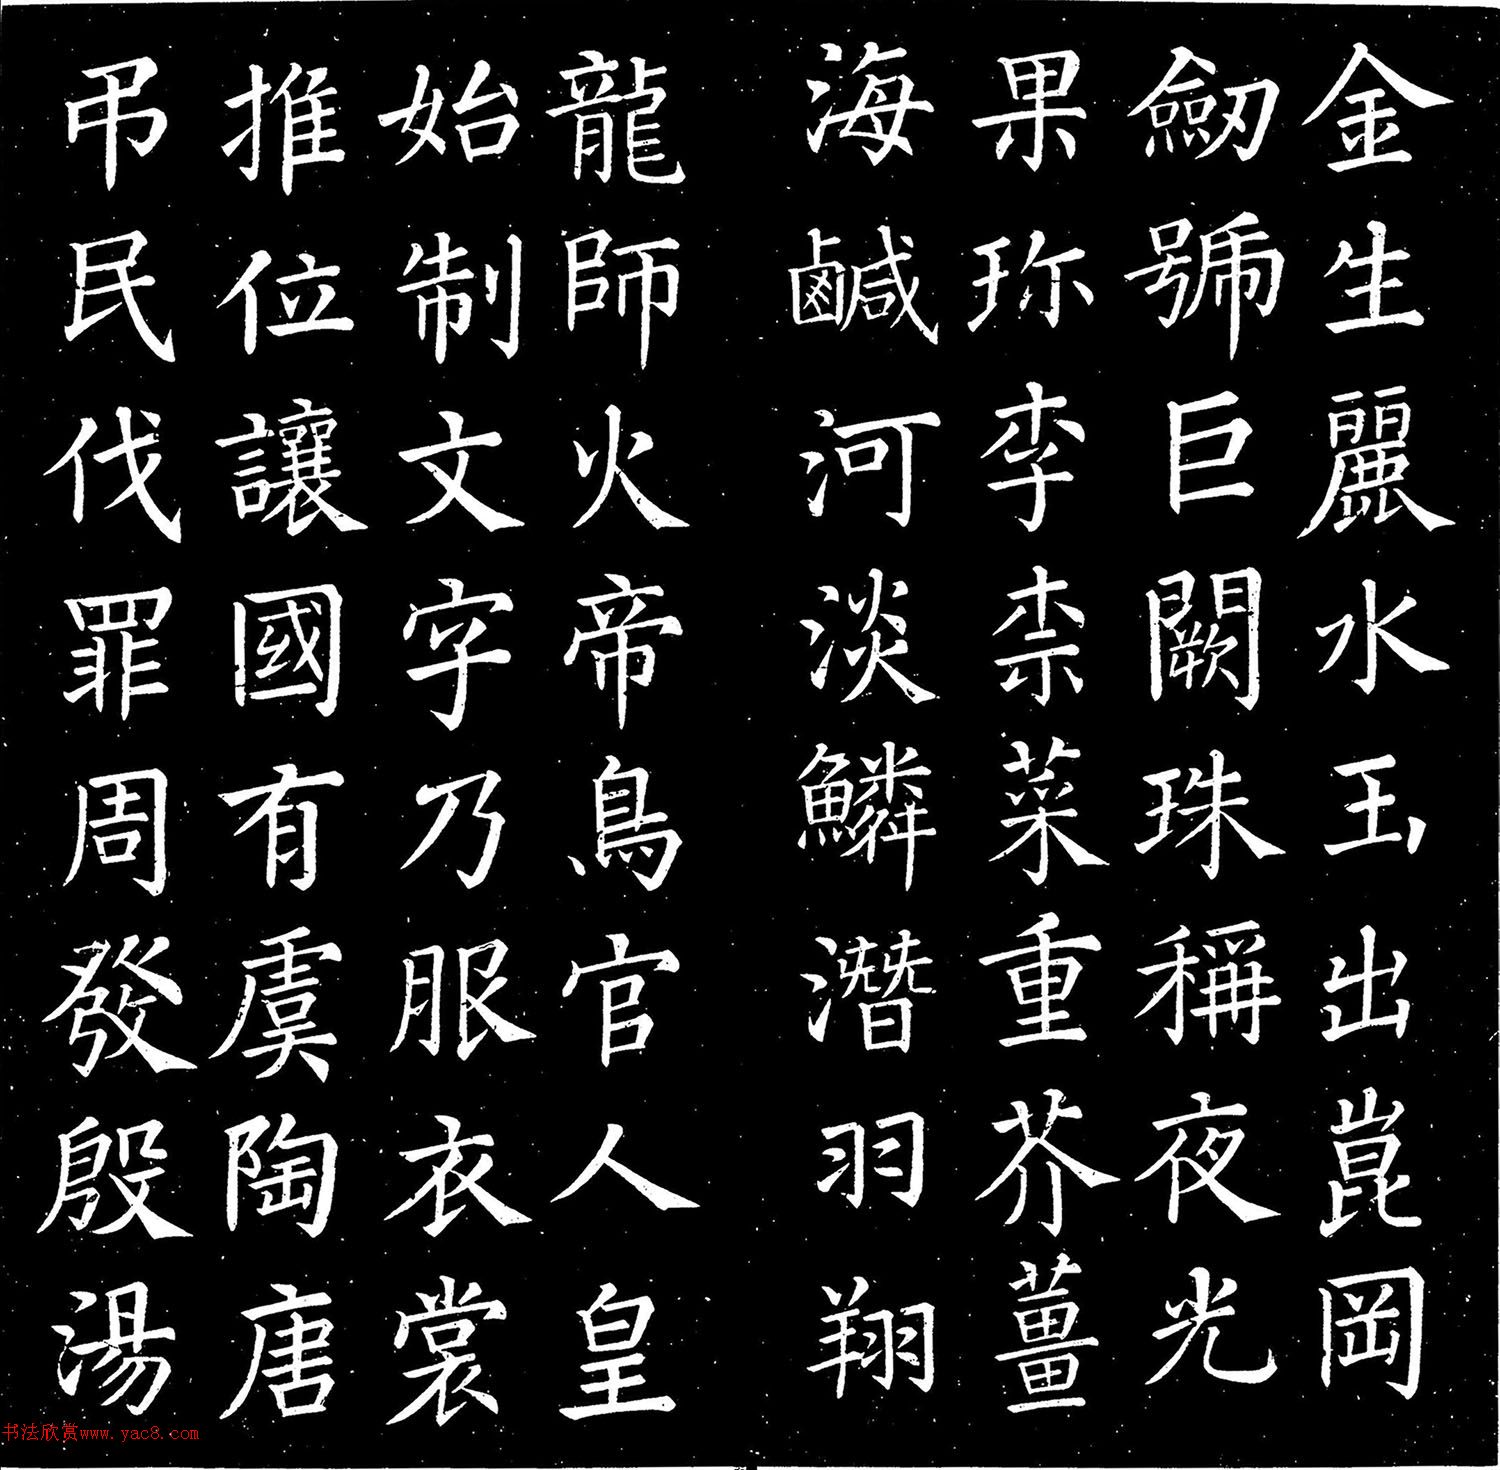 金生麗水玉出崑岡
劒號巨闕珠稱夜光
果珎李柰菜重芥薑
海鹹河淡鱗潛羽翔
龍師火帝鳥官人皇
始制文字乃服衣裳
推位讓國有虞陶唐
弔民伐罪周發殷湯
书法欣赏www.yac8.com